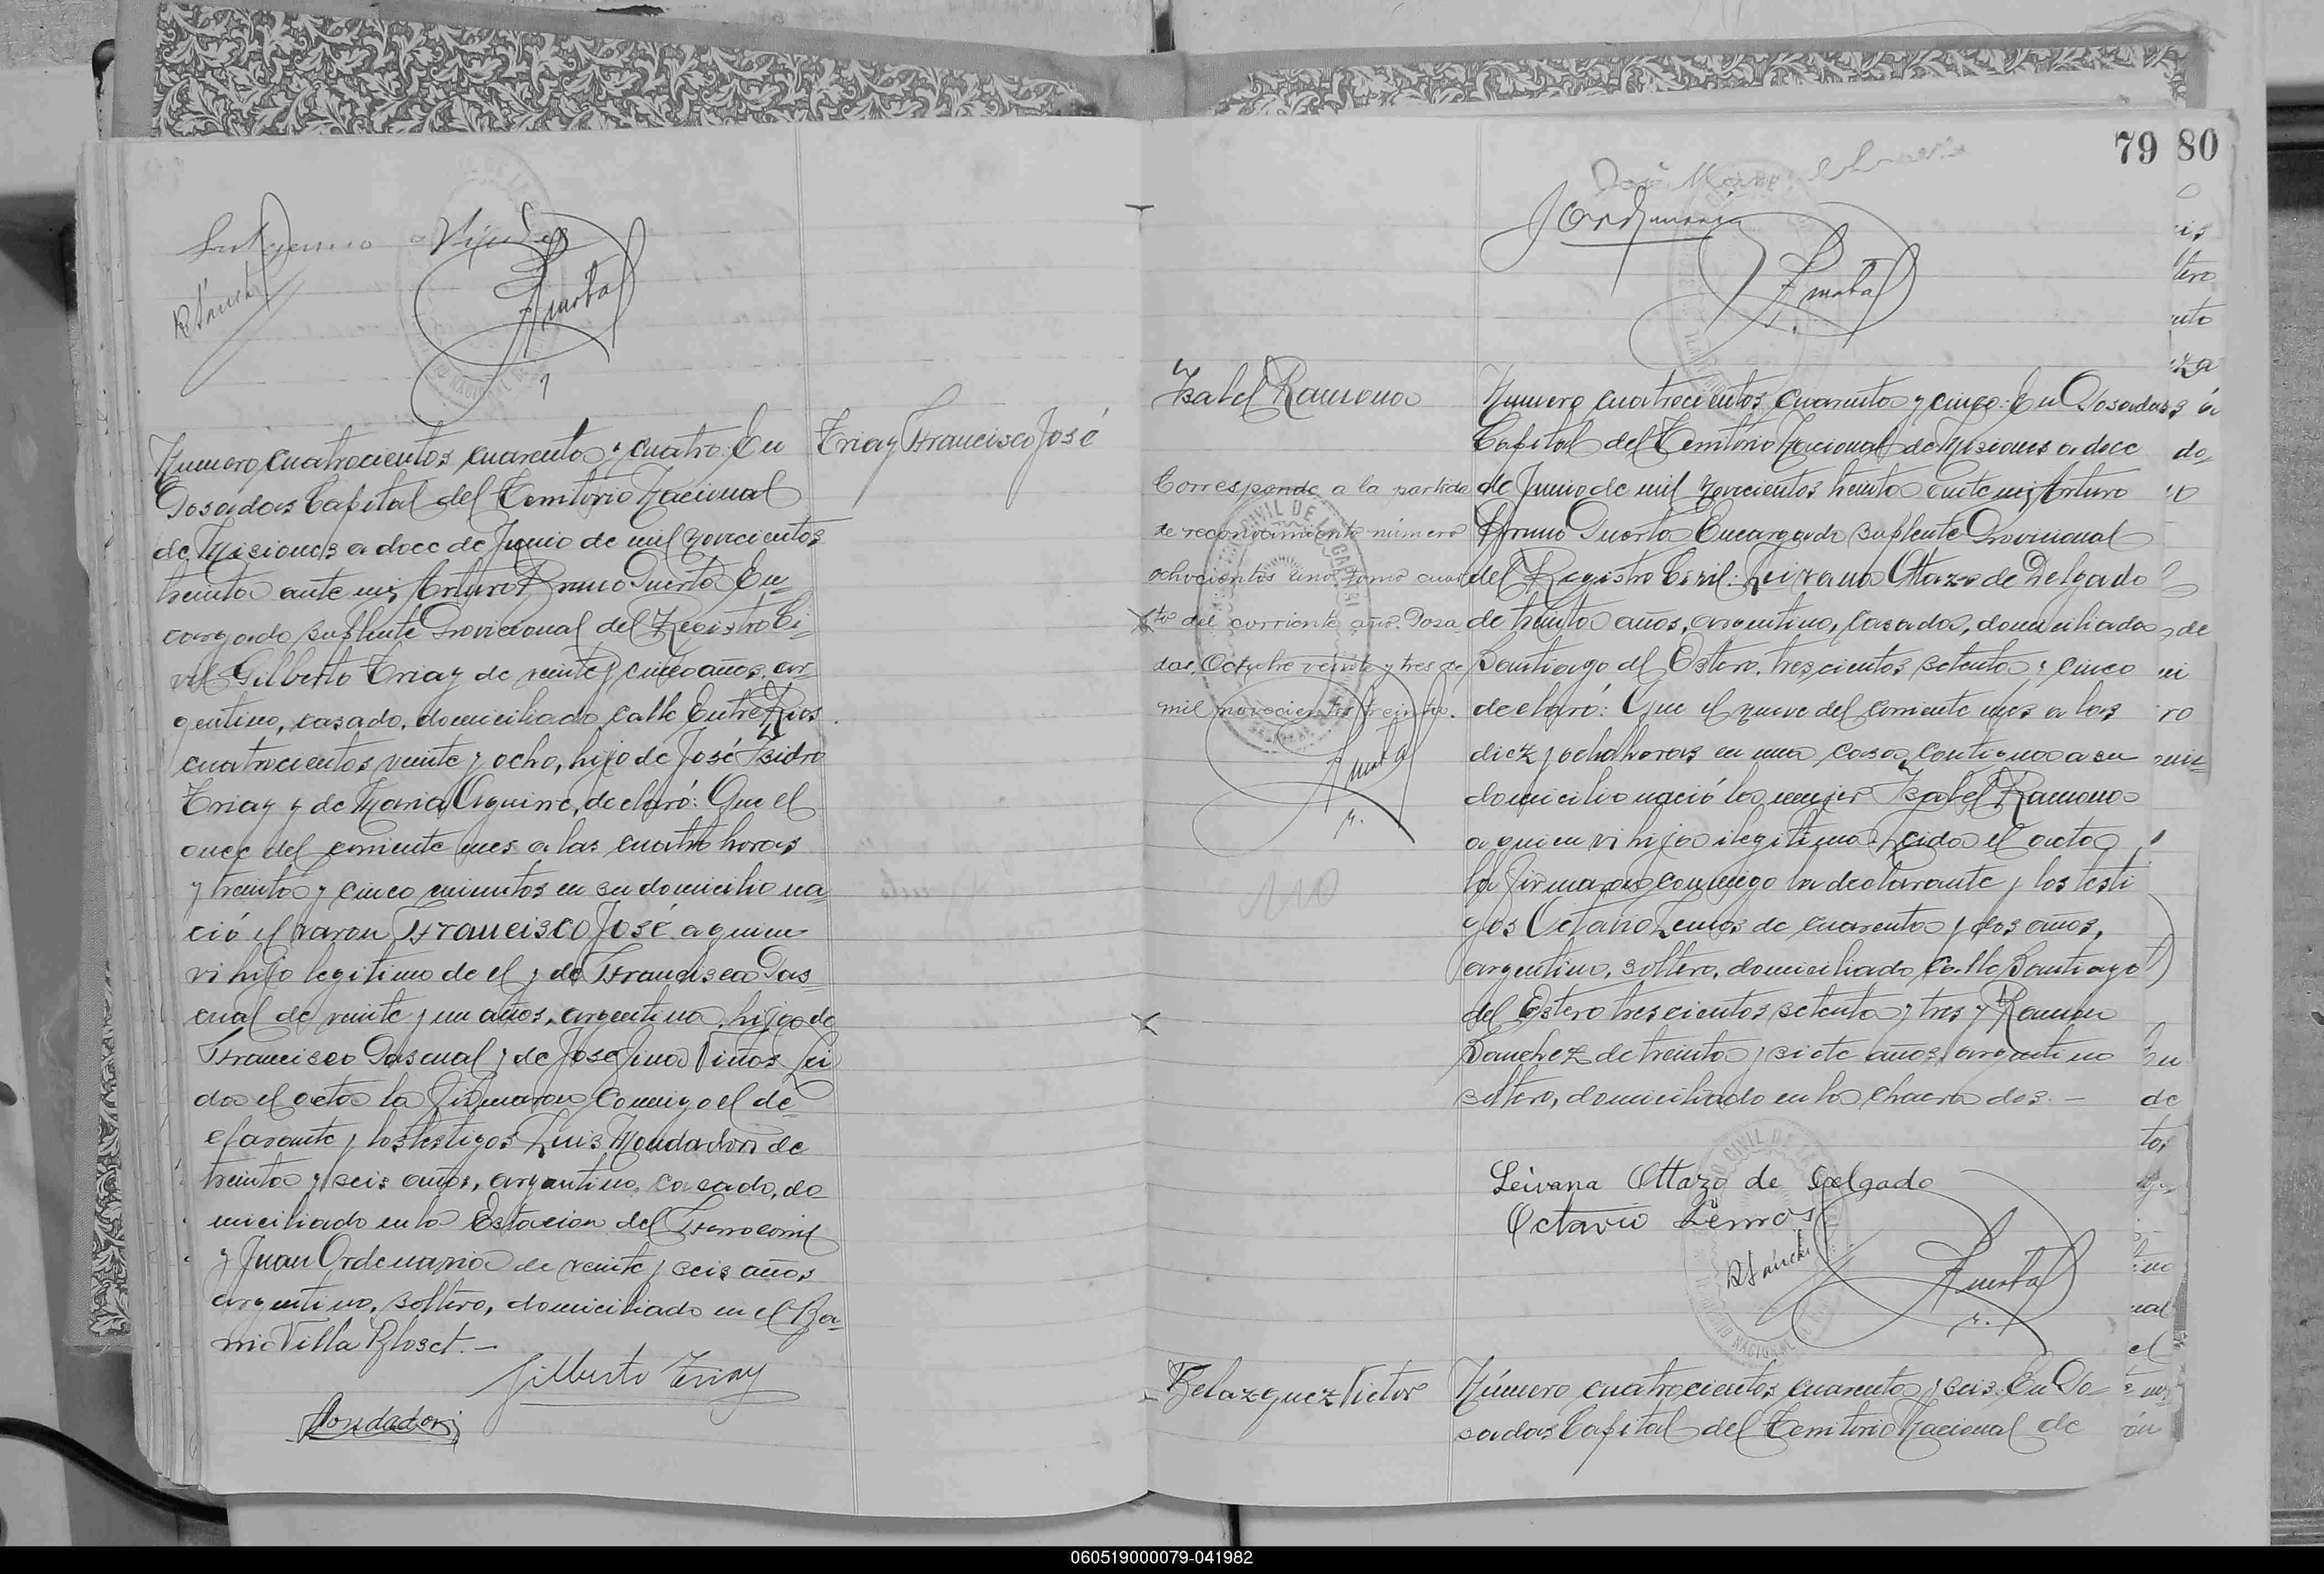 R Sánchez
Puerta
Numero cuatrocientos cuarenta y cuatro: En
Posadas Capital del Territorio Nacional
de Misiones a doce de Junio de mil novecientos
treinta ante mi, Arturo Bruno Puerta En-
cargado suplente Provicional del Registro Ci-
vil Gilberto Triay de veinte y cinco años, ar-
gentino, casado, domiciliado calle Entre Rios
cuatrocientos veinte y ocho, hijo de José Isidro
Triay y de Maria Aguirre, declaró: Que el
once del corriente mes a las cuatro horas
y treinta y cinco minutos en su domicilio na-
ció el varon Francisco José a quien
vi hijo legitimo de el y de Francisca Pas-
cual de veinte y un años, argentina, hija de
Francisco Pascual y de Josefina Viños Lei-
da el acta la firmaron conmigo el de-
clarante y los testigos Luis Mondadori de
treinta y seis años, argentino, casado, do-
miciliado en la Estacion del Ferrocarril
y Juan Ordenavia de veinte y seis años
argentino, soltero, domiciliado en el Ba-
rrio Villa Blosct.—
Gilberto Triay
Mondadori
Triay Francisco José
79 80
Puerta
Isabel Ramona
Corresponde a la partida
de reconocimiento número
ochocientos uno, tomo cuar
to del corriente año. Posa
das, Octubre veinte y tres de
mil novecientos treinta.
Puerta
Numero cuatrocientos cuarenta y cinco: En Posadas
Capital del Territorio Nacional de Misiones a doce
de Junio de mil novecientos treinta ante mi, Arturo
Bruno Puerta Encargado suplente Provicional
del Registro Civil: Leivana Ottazo de Delgado
de treinta años, argentina, casada, domiciliada
Santiago del Estero, trescientos setenta y cinco
declaró: Que el nueve del corriente mes a las
diez y ocho horas en una casa contigua a su
domicilio nació la mujer Isabel Ramona
a quien vi hija ilegitima. Leida el acta
la firmaron conmigo la declarante y los testi
gos Octavio Lemos de cuarenta y dos años,
argentino, soltero, domiciliado calle Santiago
del Estero trescientos setenta y tres y Ramon
Sanchez de treinta y siete años, argentino
soltero, domiciliado en la chacra dos.—
Leivana Ottazo de Delgado
Octavio Lemos
R Sánchez
Puerta
Belazquez Victor
Número cuatrocientos cuarenta y seis: En Po-
sadas Capital del Territorio Nacional de
060519000079-041982